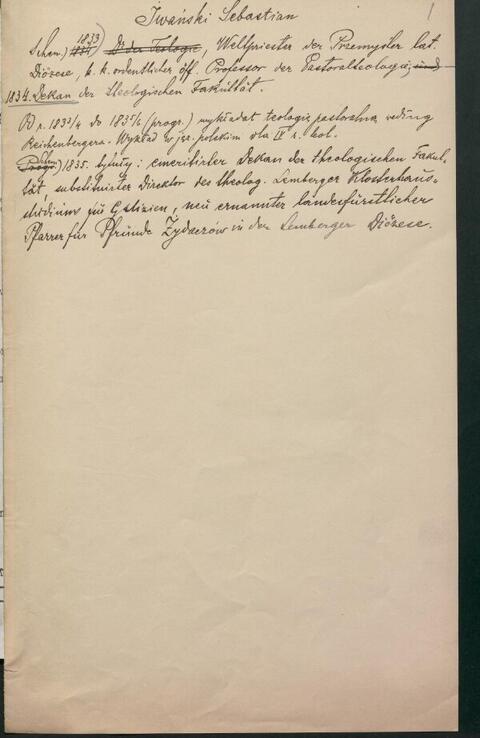 Iwański Sebastian
1
1833
Schem.) 1834 Dr der Teologie, Weltpriester der Przemysler lat.
Diözese, k. k. ordentlicher öff. Professor der Pastoralteologie, und
1834. Dekan der theologischen Fakultät.
Od r. 1833/4 do 1835/6 (progr.) wykładał teologię pastoralną według
Reichenbergera. Wykład w jęz. polskim dla IV r. teol.
Schem.
Progr.) 1835. tytuły: emeritirter Dekan der theologischen Fakul-
tät, substituirter Direktor des theolog. Lemberger Klosterhaus-
studiums für Galizien, neu ernannter landesfürstlicher
Pfarrer für Pfründe Żydaczów in der Lemberger Diözese.